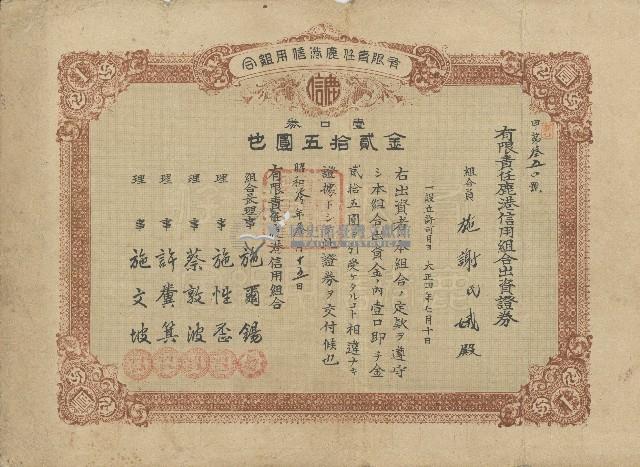 有限責任鹿港信用組合
信
壹口券
金貳拾五圓也
有限責任鹿港信用組合出資證券
組合員 施謝氏 殿
一設立許可月日 大正四年七月十日
右出資者ハ本組合ノ定款ヲ遵守
シ本組合出資金ノ內壹口卽チ金
貳拾五圓 引受ケタルコト相違ナキ
證據トシ 出證券ヲ交付候也
昭和 年 月十五日
有限責任鹿港信用組合
組合長理事 施爾錫
理事 施性
理事 蔡敦波
理事 許冀箕
理事 施文坡